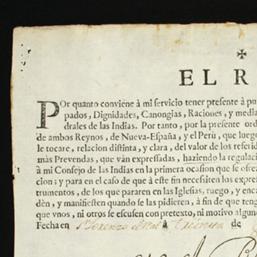 ✠
EL R
POr quanto conviene à mi servicio tener presente à pu
pados, Dignidades, Canongias, Raciones, y media
drales de las Indias. Por tanto, por la presente ord
de ambos Reynos, de Nueva-España, y el Perù, que luego
le tocare, relacion distinta, y clara, del valor de los referid
màs Prevendas, que vàn expressadas, haziendo la regulaciò
à mi Consejo de las Indias en la primera ocasion que se ofrez
cion; y para en el caso de que à este fin necessiten los expres
trumentos, de los que pararen en las Iglesias, ruego, y enca
dèn, y manifiesten quando se las pidieren, à fin de que teng
que vnos, ni otros se escusen con pretexto, ni motivo algun
Fecha en Sn Lorenzo à de